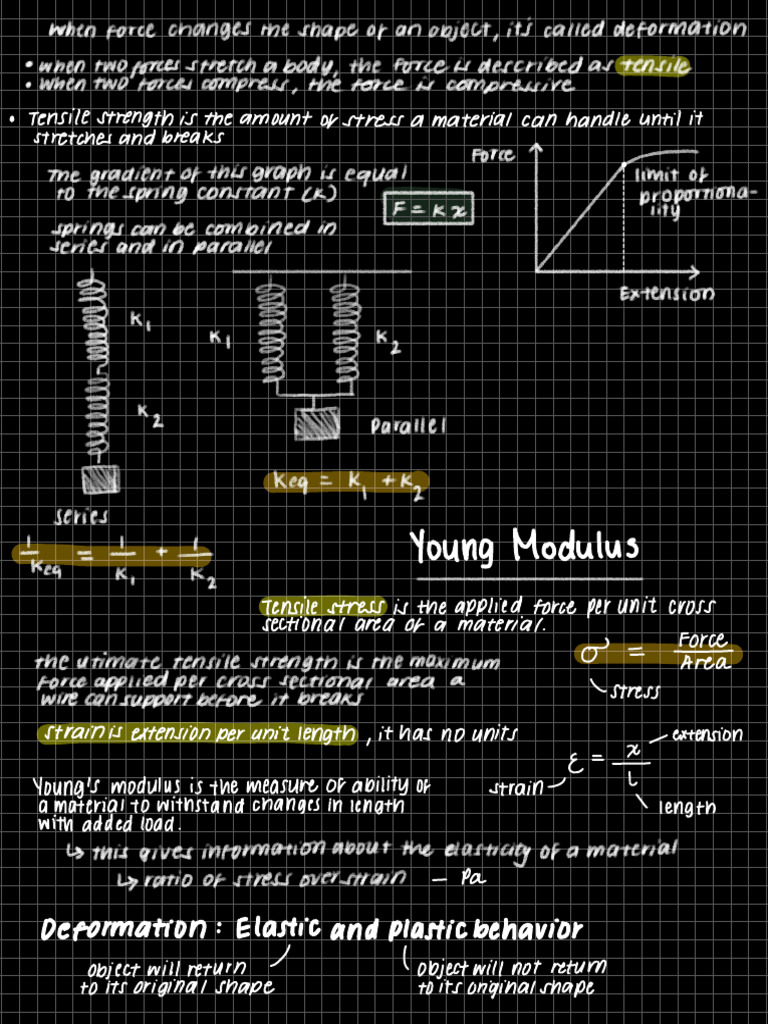 when force changes the shape of an object, it's called deformation
• when two forces stretch a body, the force is described as tensile
• when two forces compress, the force is compressive
• Tensile strength is the amount of stress a material can handle until it
stretches and breaks
The gradient of this graph is equal
to the spring constant (k)
F = k x
springs can be combined in
series and in parallel
Force
limit of
proportiona-
lity
Extension
K1
K2
series
1/Keq = 1/K1 + 1/K2
K1
K2
Parallel
Keq = K1 + K2
Young Modulus
Tensile stress is the applied force per unit cross
sectional area of a material.
σ = Force/Area
stress
the utimate tensile strength is the maximum
force applied per cross sectional area a
wire can support before it breaks
strain is extension per unit length, it has no units
ε = x/L
extension
strain
length
Young's modulus is the measure of ability of
a material to withstand changes in length
with added load.
↳ this gives information about the elasticity of a material
↳ ratio of stress over strain – Pa
Deformation: Elastic and plastic behavior
object will return
to its original shape
object will not return
to its original shape